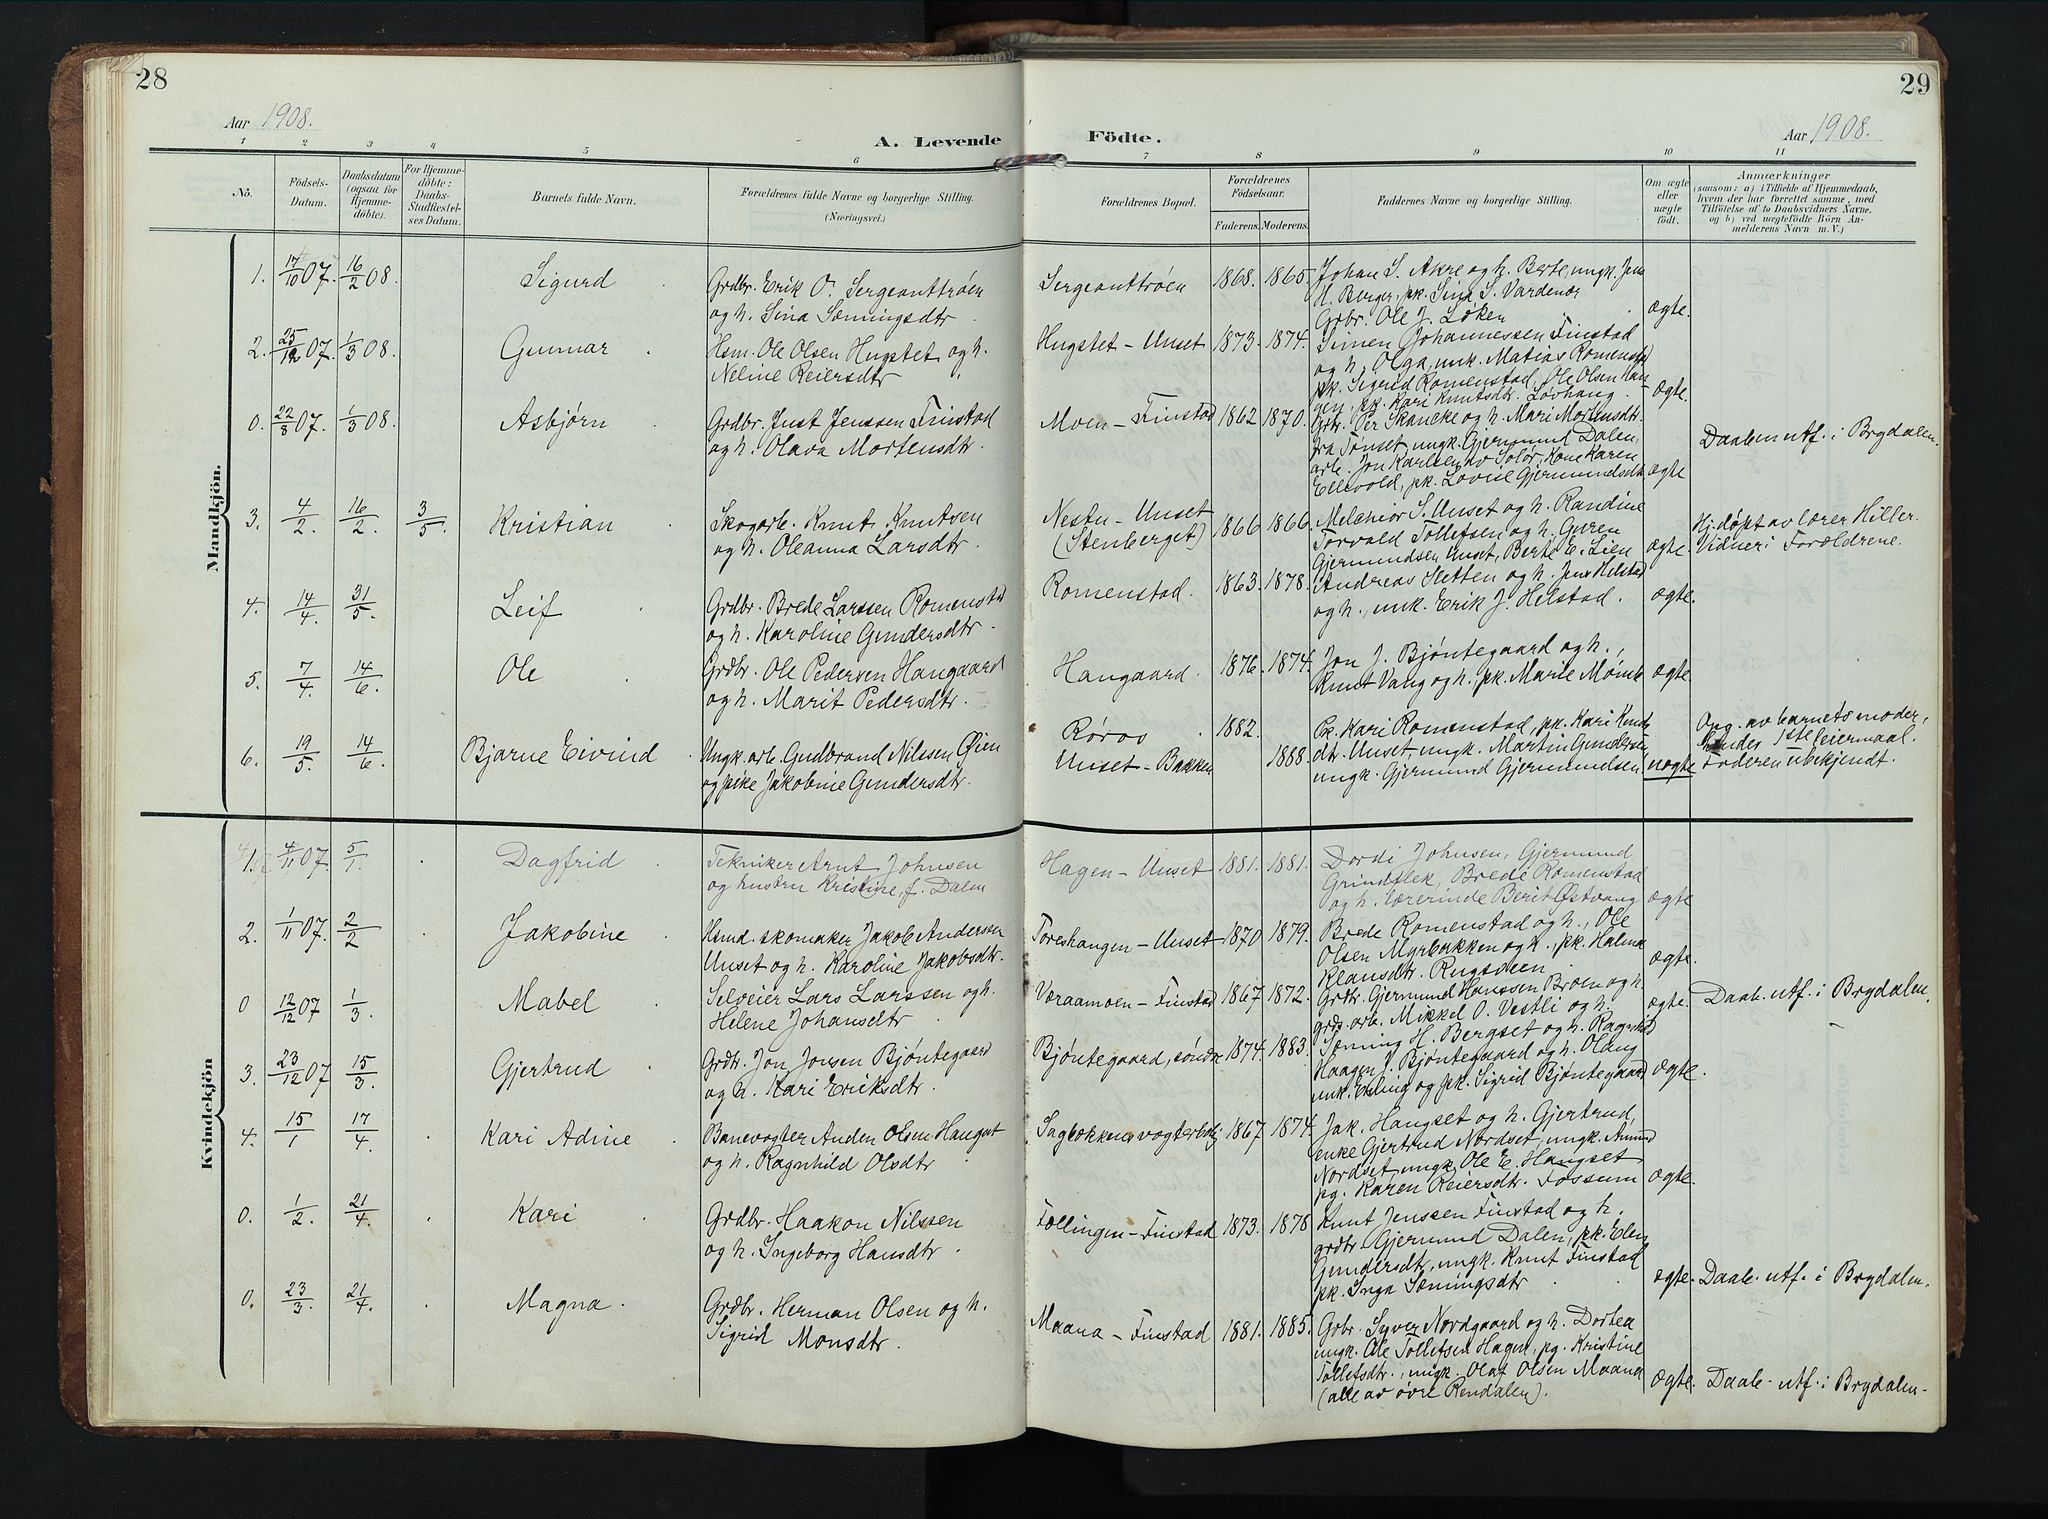 28
29
Aar 1908.
A. Levende Födte.
Aar 1908.
1 2 3 4 5 6 7 8 9 10 11
No.
Födsels-Datum.
Daabsdatum (ogsaa for Hjemmedöbte).
For Hjemmedöbte: Daabs-Stadfæstelses Datum.
Barnets fulde Navn.
Forældrenes fulde Navne og borgerlige Stilling.
(Næringsvei.)
Forældrenes Bopæl.
Forældrenes Födselsaar.
Faderens. Moderens.
Faddernes Navne og borgerlige Stilling.
Om ægte eller uægte födt.
Anmærkninger
(saasom: a) i Tilfælde af Hjemmedaab,
hvem der har forrettet samme, med
Tilföielse af to Daabsvidners Navne.
og b) ved uægtefödte Börn Anmelderens Navn m. V.)
Mandkjön.
1. 17/10 07. 16/2 08. Sigurd
Grdbr. Erik O. Sergeanttrøen
og h. Sina Sæmingsdtr
Sergeanttrøen 1868. 1865.
Johan S. Akre og h. Berte, ungk. Jens
H. Berger, pk. Sina S. Vardenær
Grbr. Ole J. Løken
ægte.
2. 25/12 07. 1/3 08. Gunnar
Hsm. Ole Olsen Hugstet og h.
Neline Reiersdtr
Hugstet - Unset 1873. 1874.
Simen Johannessen Finstad
og h. Olga, unk. Matias Romenstad
pk. Sigrid Romenstad, Ole Olsen Haugen, pk. Kari Knutsdtr. Løvhaug.
ægte.
0. 22/8 07. 1/3 08. Asbjørn
Grdbr. Just Jenssen Finstad
og h. Olava Mortensdtr.
Moen - Finstad 1862 1870.
Grbr. Per Skancke og h. Mari Mortensdtr.
fra Tønset, ungk. Gjermund Dalen,
arb. Jon Karlsen av Solør, Kone Karen
Ellevold, pk. Lovise Gjermundsdtr.
ægte
Daaben utf. i Brydalen.
3. 4/2. 16/2. 3/5 Kristian
Skogarb. Knut Knutsen
og h. Oleanna Larsdtr.
Nestu - Unset
(Stenberget) 1866 1866.
Melchior S. Unset og h. Randine
Torvald Tollefsen og h. Guren
Gjermundsen Unset, Berte E. Lien
ægte.
Hj. døpt av lærer Hiller.
Vidner: Forældrene.
4. 14/4. 31/5. Leif
Grdbr. Brede Larssen Romenstad
og h. Karoline Gundersdtr.
Romenstad. 1863. 1878.
Andreas Sletten og h. Jens Helstad
og h., unk. Erik J. Helstad.
ægte.
5. 7/4. 14/6. Ole
Grdbr. Ole Pedersen Hangaard
og h. Marit Pedersdtr.
Hangaard. 1876. 1874.
Jon J. Bjøntegaard og h.,
Knut Vang og h. pk. Marie Momb
ægte
6. 19/5. 14/6. Bjarne Eivind
Ungk. arb. Gudbrand Nilssen Øien
og pike Jakobine Gundersdtr.
Røros 1882.
Unset - Bakken 1888.
Pk. Kari Romenstad, pk. Kari Knuts
dtr. Unset, ungk. Martin Gundersen
ungk. Gjermund Gjermundsen.
uægte
Opg. av barnets moder,
hendes 1ste leiermaal.
Faderen ubekjendt.
Kvindekjön
1. 4/11 07. 5/1. Dagfrid
Tekniker Arnt Johnsen
og hustru Kristine, f. Dalen
Hagen - Unset 1881. 1881.
Dordi Johnsen, Gjermund
Grindflek, Brede Romenstad
og h. lærerinde Berit Østvang
ægte
2. 1/11 07. 2/2 Jakobine
Hsmd. skomaker Jakob Andersen
Unset og h. Karoline Jakobsdtr.
Toreshaugen - Unset 1870 1879.
Brede Romenstad og h., Ole
Olsen Myrbakken og h., pk. Halma
Klausdtr. Rugsveen.
ægte.
0 12/12 07 1/3. Mabel
Selveier Lars Larssen og h.
Helene Johansdtr
Væraamoen - Finstad 1867 1872.
Grdbr. Gjermund Hanssen Broen og h.
grds. arb. Mikkel O. Vestli og h.
ægte.
Daab. utf. i Brydalen.
3. 23/12 07 15/3. Gjertrud
Grdbr. Jon Jonsen Bjøntegaard
og h. Kari Eriksdtr.
Bjøntegaard, søndre 1874. 1883.
Sæming H. Bergset og h. Ragnhild
Haagen J. Bjøntegaard og h. Olaug
unk. Erling og pk. Sigrid Bjøntegaard
ægte.
4. 15/1 17/4. Kari Adine
Banevogter Anden Olsen Hangset
og h. Ragnhild Olsdtr
Sagbakken vogterbolig 1867 1874.
Jak. Hangset og h. Gjertrud,
enke Gjertrud Nordset, ungk. Amund
Nordset, ungk. Ole E. Hangset
pg. Karen Reiersdtr. Fossum
ægte.
0. 1/2. 21/4. Kari
Grdbr. Haakon Nilssen
og h. Ingeborg Hansdtr.
Follingen - Finstad 1873. 1878
Knut Jenssen Finstad og h.
grdbr. Gjermund Dalen, pk. Elen
Gundersdtr, ungk. Knut Finstad
pk. Inga Sæmingsdtr
ægte. Daab. utf. i Brydalen.
0. 23/3. 21/4. Magna.
Grdbr. Herman Olsen og h.
Sigrid Monsdtr.
Maana - Finstad 1881. 1885.
Gbr. Syver Nordgaard og h. Dortea
ungk. Ole Tollefsen Hagen, pg. Kristine
Tollefsdtr., ungk. Olaf Olsen Maana
(alle av øvre Rendalen).
ægte. Daab. utf. i Brydalen.